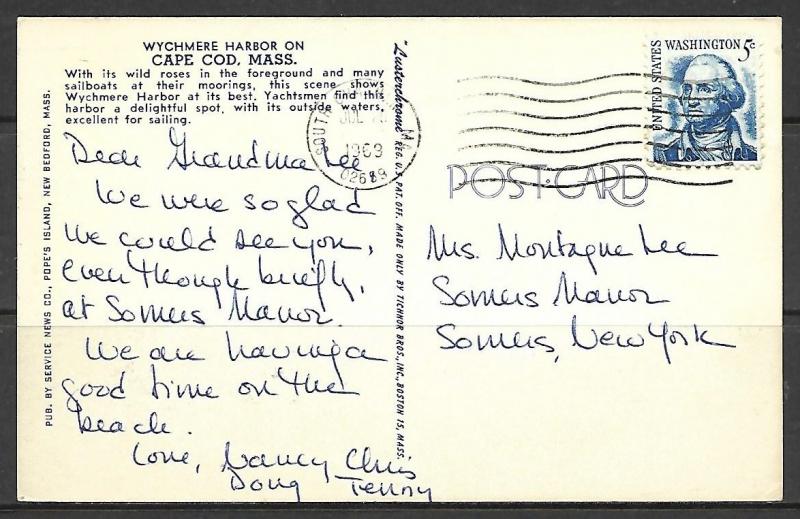 WYCHMERE HARBOR ON
CAPE COD, MASS.
With its wild roses in the foreground and many
sailboats at their moorings, this scene shows
Wychmere Harbor at its best. Yachtsmen find this
harbor a delightful spot, with its outside waters,
excellent for sailing.
Dear Grandma Lee
We were so glad
we could see you,
even though briefly,
at Somers Manor.
We are having a
good time on the
beach.
Love, Nancy Chris
Doug Jenny
PUB. BY SERVICE NEWS CO., POPE'S ISLAND, NEW BEDFORD, MASS.
"Lusterchrome" REG. U.S. PAT. OFF. MADE ONLY BY TICHNOR BROS., INC., BOSTON 15, MASS.
SOUTH MA
JUL
1969
02659
UNITED STATES
WASHINGTON 5c
POST CARD
Ms. Montague Lee
Somers Manor
Somers, New York